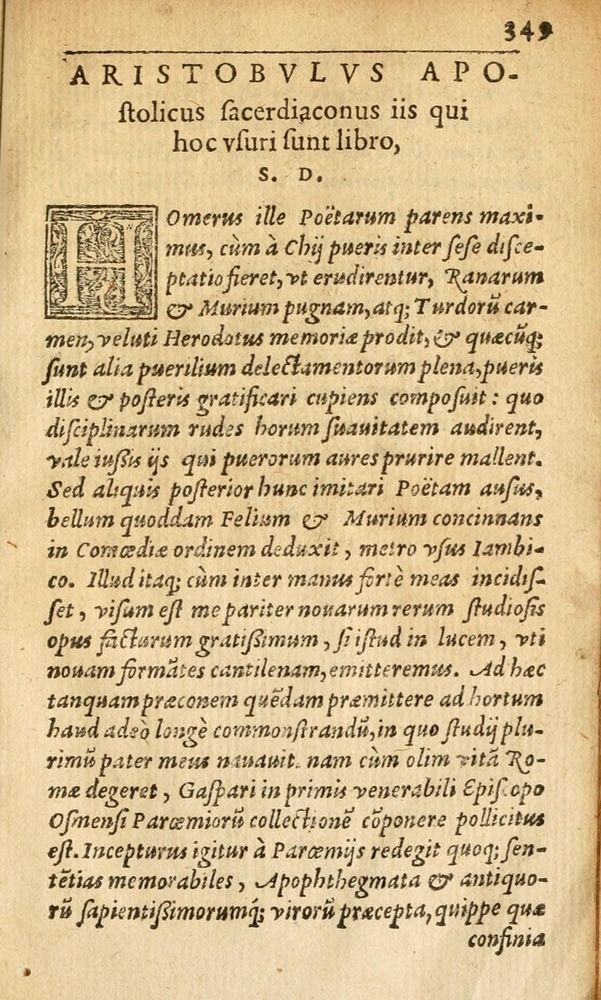 349
ARISTOBVLVS APO-
ſtolicus ſacerdiaconus iis qui
hoc vſuri ſunt libro,
S. D.
HOmerus ille Poëtarum parens maxi-
mus, cùm à Chij pueris inter ſeſe diſce-
ptatio fieret, vt erudirentur, Ranarum
& Murium pugnam, atq; Turdorũ car-
men, veluti Herodotus memoriæ prodit, & quæcũq;
ſunt alia puerilium delectamentorum plena, pueris
illis & poſteris gratificari cupiens compoſuit: quo
diſciplinarum rudes horum ſuauitatem audirent,
vale iuſsis ijs qui puerorum aures prurire mallent.
Sed aliquis poſterior hunc imitari Poëtam auſus,
bellum quoddam Felium & Murium concinnans
in Comœdiæ ordinem deduxit, metro vſus Iambi-
co. Illud itaq; cùm inter manus fortè meas incidiſ-
ſet, viſum eſt me pariter nouarum rerum ſtudioſis
opus facturum gratiſsimum, ſi iſtud in lucem, vti
nouam formãtes cantilenam, emitteremus. Ad hæc
tanquam præconem quẽdam præmittere ad hortum
haud adeò longè commonſtrandũ, in quo ſtudij plu-
rimũ pater meus nauauit. nam cùm olim vitã Ro-
mæ degeret, Gaſpari in primis venerabili Epiſcopo
Oſmenſi Parœmiorũ collectionẽ cõponere pollicitus
eſt. Incepturus igitur à Parœmijs redegit quoq; ſen-
tẽtias memorabiles, Apophthegmata & antiquo-
rũ ſapientiſsimorumq́; virorũ præcepta, quippe quæ
confinia